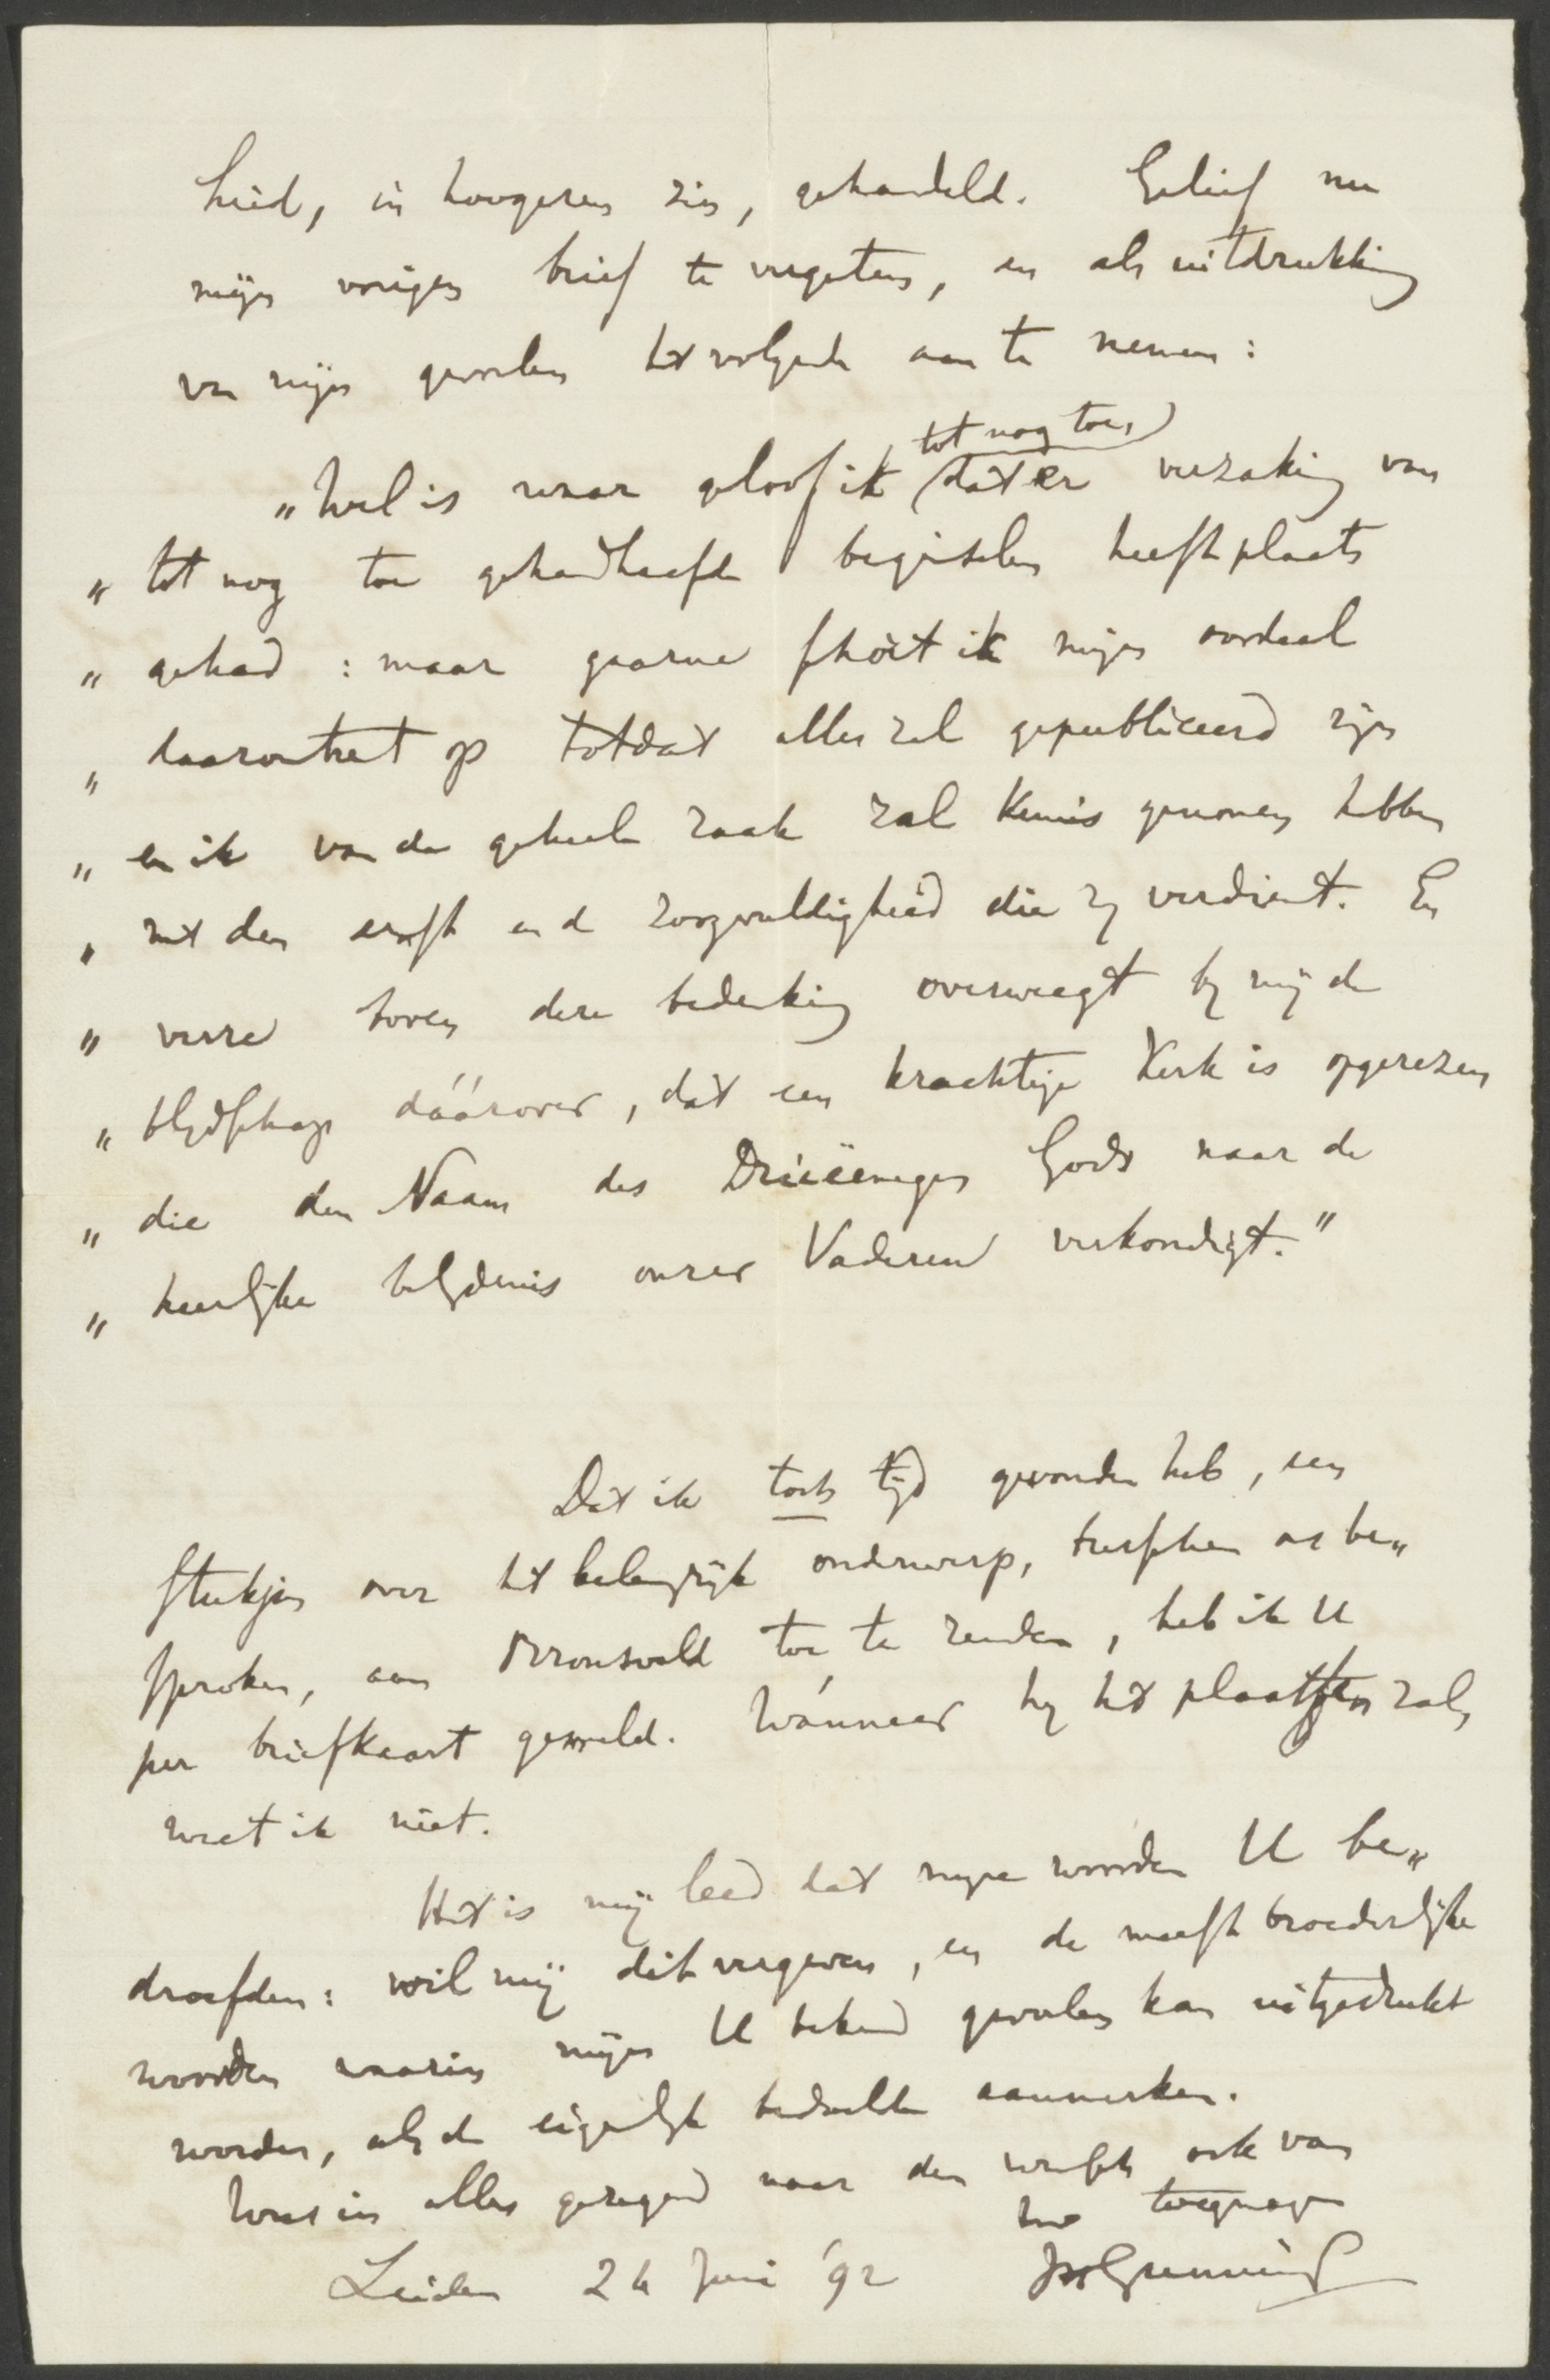 heid, in hoogeren zin, gehandeld. Gelief nu
mijn vorigen brief te vergeten, en als uitdrukking
van mijn gevoelen het volgende aan te nemen:
tot nog toe,
„Wel is waar geloof ik dat er verzaking van
„ tot nog toe gehandhaafde beginselen heeft plaats
„ gehad: maar gaarne schort ik mijn oordeel
„ daaromtrent op totdat alles zal gepubliceerd zijn
„ en ik van de geheele zaak zal kennis genomen hebben
„ met den ernst en de zorgvuldigheid die zij verdient. En
„ verre boven deze bedenking overweegt bij mij de
„ blijdschap dáárover, dat een krachtige Kerk is opgerezen
„ die den Naam des Drieëenigen Gods naar de
„ heerlijke belijdenis onzer Vaderen verkondigt."
Dat ik toch tijd gevonden heb, een
stukje over het belangrijk onderwerp, tusschen ons be„
sproken, aan Bronsveld toe te zenden, heb ik U
per briefkaart gemeld. Wánneer hij het plaatsen zal,
weet ik niet.
Het is mij leed dat mijne woorden U be„
droefden: wil mij dit vergeven, en de meest broederlijke
woorden waarin mijn U bekend gevoelen kan uitgedrukt
worden, als de eigenlijk bedoelde aanmerken.
Wees in alles gezegend naar den wensch ook van
Uw toegenegen
Leiden 26 Juni '92 JHGunning